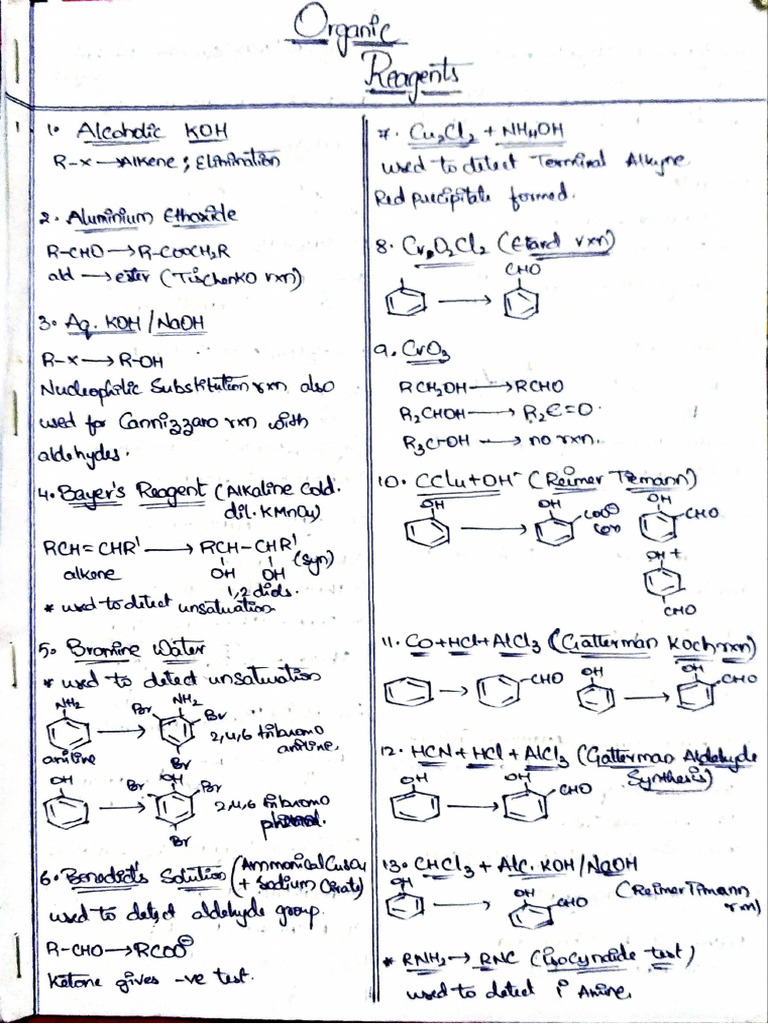 Organic
Reagents
1. Alcoholic KOH
R-X ⟶ Alkene ; Elimination
2. Aluminium Ethoxide
R-CHO ⟶ R-COOCH₂R
ald ⟶ ester (Tischenko rxn)
3. Aq. KOH / NaOH
R-X ⟶ R-OH
Nucleophilic Substitution rxn also
used for Cannizzaro rxn with
aldehydes.
4. Bayer's Reagent (Alkaline Cold.
dil. KMnO₄)
RCH=CHR' ⟶ RCH-CHR' (syn)
alkene OH OH
1,2 diols.
* used to detect unsaturation
5. Bromine Water
* used to detect unsaturation
NH₂ ⟶ NH₂ Br Br Br
aniline 2,4,6 tribromo
aniline,
OH ⟶ OH Br Br Br
2,4,6 tribromo
phenol.
6. Benedict's Solution (Ammonical CuSO₄
+ Sodium Citrate)
used to detect aldehyde group.
R-CHO ⟶ RCOO⊖
Ketone gives -ve test.
7. Cu₂Cl₂ + NH₄OH
used to detect Terminal Alkyne
Red precipitate formed.
8. CrO₂Cl₂ (Etard rxn)
⟶ CHO
9. CrO₃
RCH₂OH ⟶ RCHO
R₂CHOH ⟶ R₂C=O
R₃C-OH ⟶ no rxn.
10. CCl₄ + OH⁻ (Reimer Tiemann)
OH ⟶ OH COO⊖ (or) OH CHO
+
OH
CHO
11. CO + HCl + AlCl₃ (Gatterman Koch rxn)
⟶ CHO OH ⟶ OH CHO
12. HCN + HCl + AlCl₃ (Gatterman Aldehyde
Synthesis)
OH ⟶ OH CHO
13. CHCl₃ + Alc. KOH / NaOH
(Reimer Timann
rxn)
OH ⟶ OH CHO
* RNH₂ → RNC (isocynaide test)
used to detect 1° Amine,